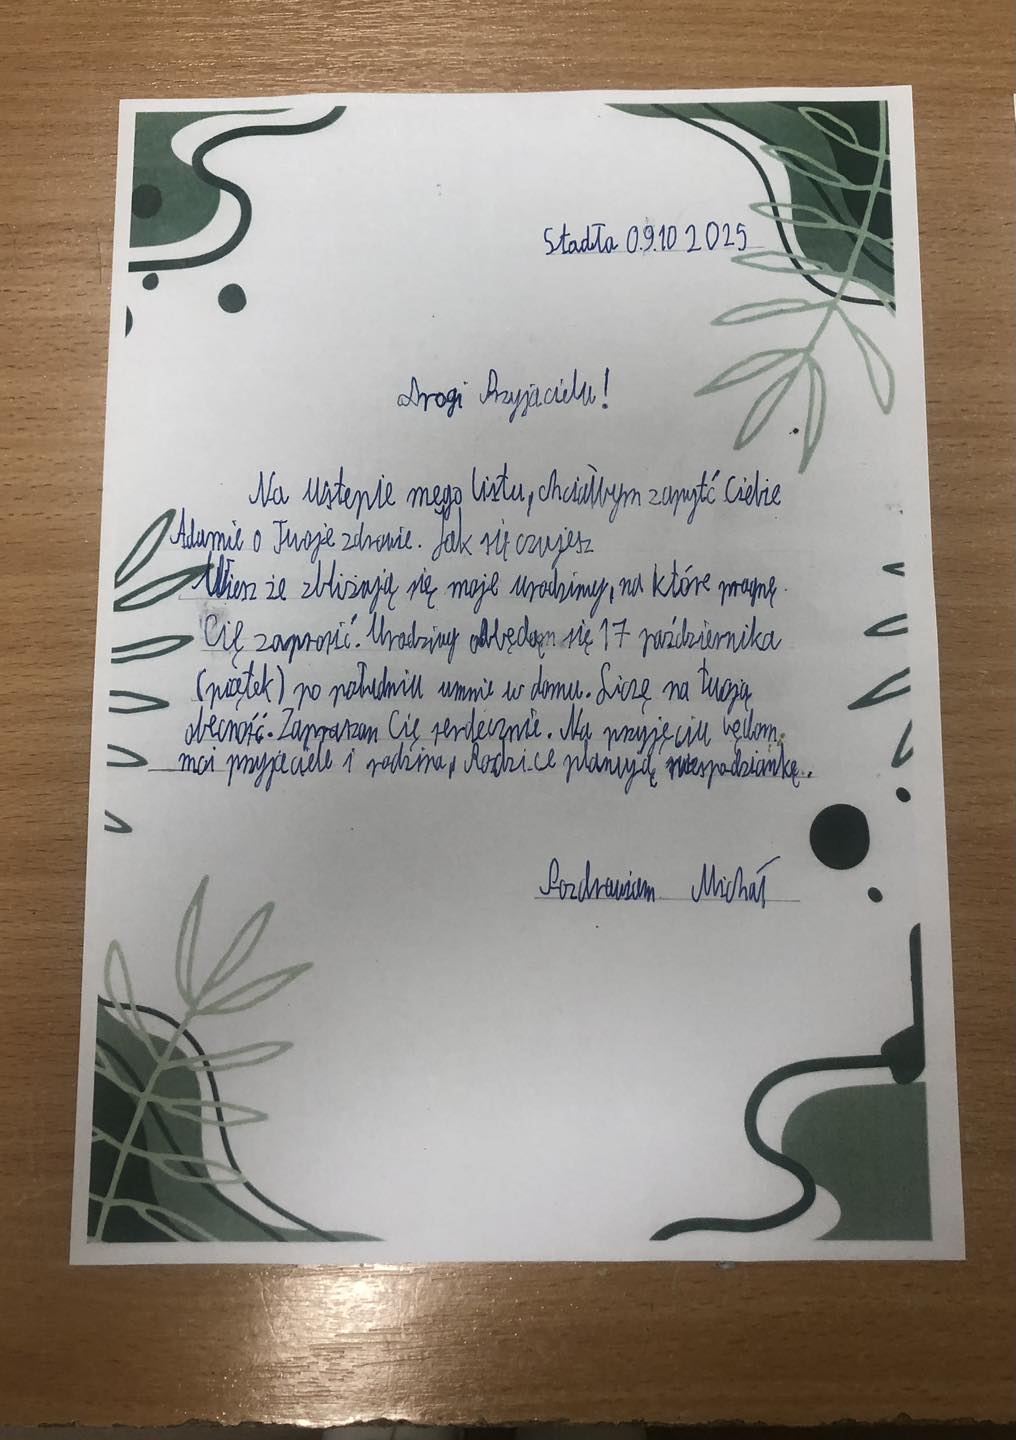 Stadła 09.10 2025
Drogi Przyjacielu!
Na wstępie mego listu, chciałbym zapytć Ciebie
Adamie o Twoje zdrowie. Jak się czujesz
Wiesz że zbliżają się moje urodziny, na które pragnę
Cię zaprosić. Urodziny odbędą się 17 października
(piątek) po południu umnie w domu. Liczę na twoją
obecność. Zapraszam Cię serdecznie. Na przyjęciu będom
moi przyjaciele i rodzina, Rodzice planują niespodziankę.
Pozdrawiam Michał